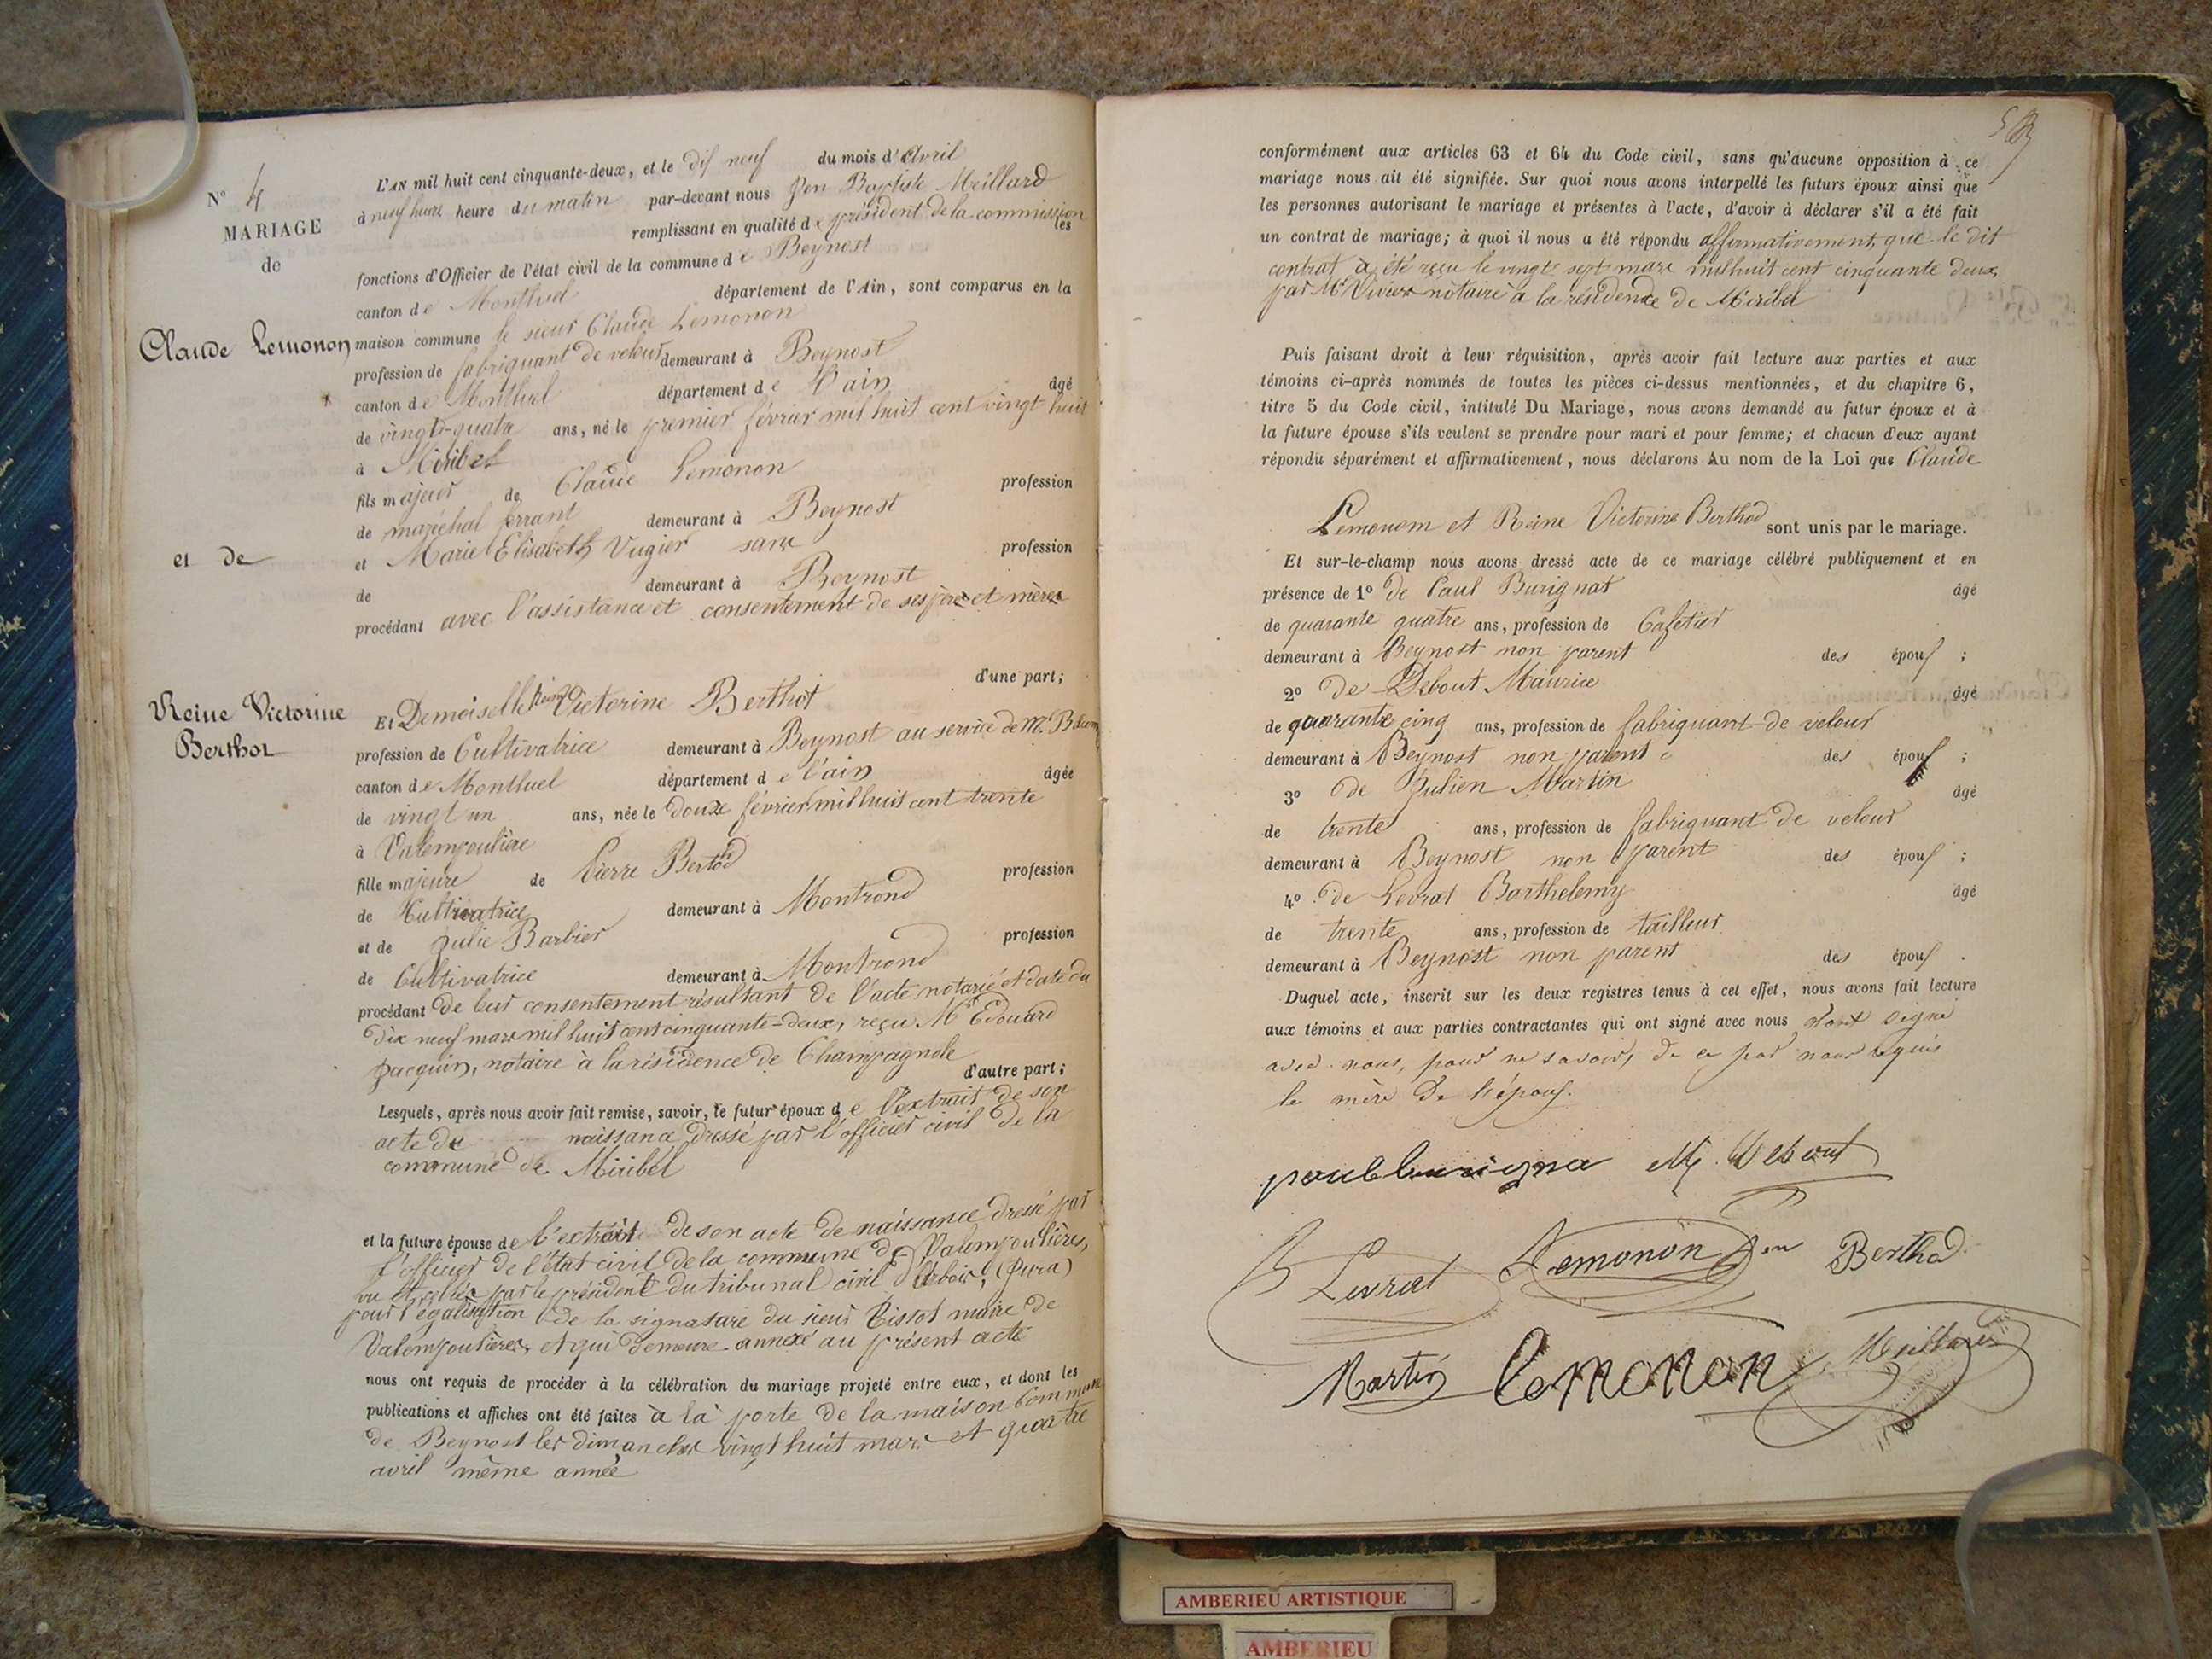 N° 4
MARIAGE
de
Claude Lemonon
et de
Reine Victorine
Berthot
L'AN mil huit cent cinquante-deux, et le dix neuf du mois d'Avril
à neuf heure heure du matin par-devant nous Jen Baptiste Meillard
remplissant en qualité de président de la commission les
fonctions d'Officier de l'état civil de la commune de Beynost
canton de Montluel département de l'Ain, sont comparus en la
maison commune le sieur Claude Lemonon
profession de fabriquant de velour demeurant à Beynost
canton de Montluel département de l'ain âgé
de vingt-quatre ans, né le premier février mil huit cent vingt huit
à Miribel
fils majeur de Claude Lemonon profession
de maréchal ferrant demeurant à Beynost
et Marie Elisabeth Vugier sans profession
de demeurant à Beynost
procédant avec l'assistance et consentement de ses père et mères
d'une part;
Et Demoiselle Reine Victorine Berthot
profession de Cultivatrice demeurant à Beynost au service de Mr.
canton de Montluel département de l'ain âgée
de vingt un ans, née le douze février mil huit cent trente
à Valempoulière
fille majeure de Pierre Bertod profession
de Cultivatrice demeurant à Montrond
et de Julie Barbier profession
de Cultivatrice demeurant à Montrond
procédant de leur consentement résultant de l'acte notarié et daté du
dix neuf mars mil huit cent cinquante-deux, reçu Me Edouard
Jacquin, notaire à la résidence de Champagnole
d'autre part;
Lesquels, après nous avoir fait remise, savoir, le futur époux de l'extrait de son
acte de naissance dressé par l'officier civil de la
commune de Miribel
et la future épouse de l'extrait de son acte de naissance dressé par
l'officier de l'état civil de la commune de Valempoulières,
vu et par le président du tribunal civil d'Arbois, (Jura)
pour légalisation de la signature du sieur Tissot maire de
Valempoulières, et qui demeure annexé au présent acte
nous ont requis de procéder à la célébration du mariage projeté entre eux, et dont les
publications et affiches ont été faites à la porte de la maison commune
de Beynost les dimanches vingt huit mars et quatre
avril même année
conformément aux articles 63 et 64 du Code civil, sans qu'aucune opposition à ce
mariage nous ait été signifiée. Sur quoi nous avons interpellé les futurs époux ainsi que
les personnes autorisant le mariage et présentes à l'acte, d'avoir à déclarer s'il a été fait
un contrat de mariage; à quoi il nous a été répondu affirmativement, que le dit
contrat à été reçu le vingt sept mars mil huit cent cinquante deux,
par Me Vivier notaire à la résidence de Miribel
Puis faisant droit à leur réquisition, après avoir fait lecture aux parties et aux
témoins ci-après nommés de toutes les pièces ci-dessus mentionnées, et du chapitre 6,
titre 5 du Code civil, intitulé Du Mariage, nous avons demandé au futur époux et à
la future épouse s'ils veulent se prendre pour mari et pour femme; et chacun d'eux ayant
répondu séparément et affirmativement, nous déclarons Au nom de la Loi que Claude
Lemonom et Reine Victorine Berthod sont unis par le mariage.
Et sur-le-champ nous avons dressé acte de ce mariage célébré publiquement et en
présence de 1° de Paul Burignat âgé
de quarante quatre ans, profession de Cafetier
demeurant à Beynost non parent des époux ;
2° de Debout Maurice âgé
de quarante cinq ans, profession de fabriquant de velour
demeurant à Beynost non parent des époux ;
3° de Julien Martin âgé
de trente ans, profession de fabriquant de velour
demeurant à Beynost non parent des époux ;
4° de Levrat Barthelemy âgé
de trente ans, profession de tailleur
demeurant à Beynost non parent des époux .
Duquel acte, inscrit sur les deux registres tenus à cet effet, nous avons fait lecture
aux témoins et aux parties contractantes qui ont signé avec nous n'ont signé
avec nous, pour ne savoir, de ce par nous requis
la mère de l'époux.
M Debout
B Levrat Lemonon Berthod
Martin Lemonon Meillard
AMBERIEU ARTISTIQUE
AMBERIEU